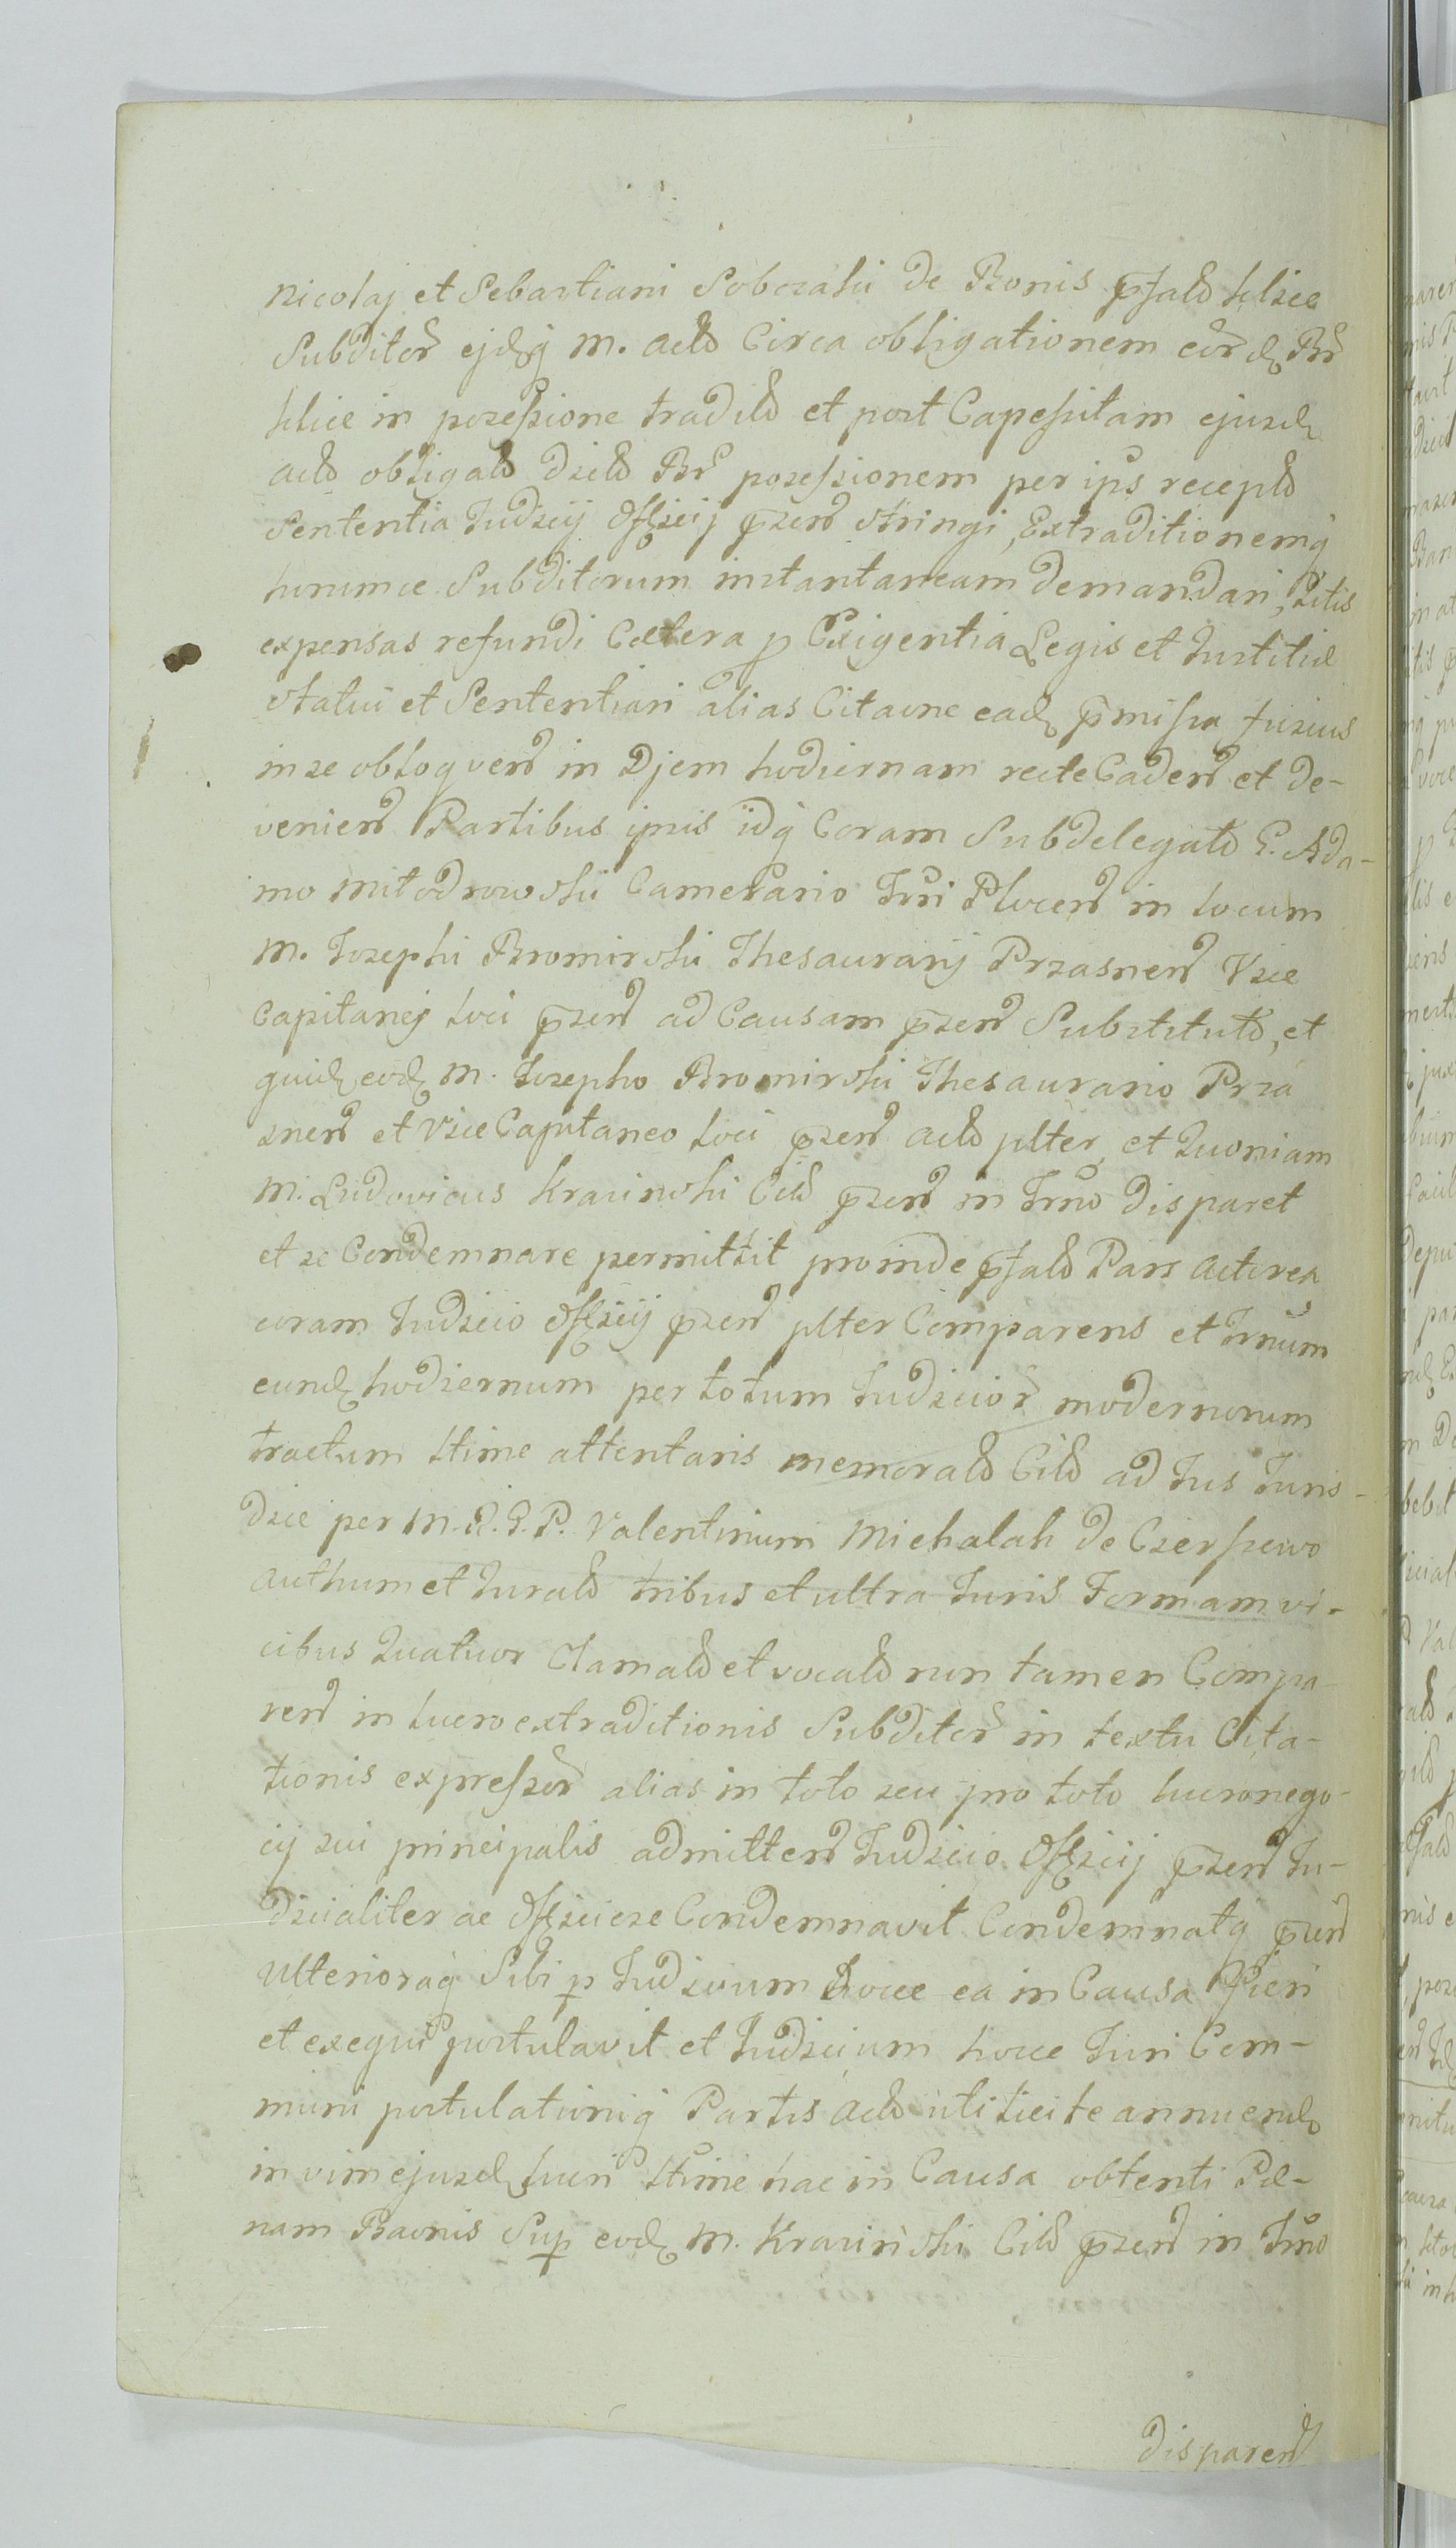 Nicolaj et Sebastiani Sobczaki de Bonis pfatd
Subditor ejdq M. Actd Circa obligationem eord Br
in possessione tradild et post Capessitam ejusd
Actd obligatd Br possessionem per ips receptd
Sententia Judzij Offzij pzend stringi, Extraditionemq
hurumce Subditorum instantaneam demandari, Litis
expensas refundi Cætera p Exigentia Legis et Justitiæ
statui et Sententiari alias Citaone ead pmissa fusius
in se obloqvend in Djem hodiernam recte Cadend et de-
veniend Partibus ipsis idq Coram Subdelegatd G. Ada-
mo Milodrowski Camerario Tri Plocend in locum
M. Josephi Bromirski Thesaurarij Przasnend Vice
Capitanej loci pzend ad Causam pzend Substitutd, et
quid eod M. Josepho Bromirski Thesaurario Prza
snend et Vice Capitaneo loci pzend Actd plter et Quoniam
M. Ludovicus Krasinski Citd pzend in Trno disparet
et se Condemnare permittit proinde pfatd Pars Actorea
coram Judzcio Offzij pzend plter Comparens et Trnum
eund hodiernum per totum Judzcior modernorum
tractum ltime attentans memoratd Citd ad Jus Juris-
dzce per M. Valentinum Michalak de
Authum et Juratd tribus et ultra Juris Formam vi-
cibus Quatuor Clamatd et vocatd non tamen Compa-
rend in lucro extraditionis Subditor in textu Cita-
tionis expressor alias in toto seu pro toto lucro nego-
cij sui principalis admittend Judzcio Offzcij pzend Ju-
dzcialiter ac Offzciose Condemnavit Condemnatq pzend
ulterioraq Sibi p Judzcium hocce ea in Causa Fieri
et exequi postulavit et Judzcium hocce Juri Com-
muni postulationiq Partis Actd uti licite annuend
in vim ejusd lucri ltime hac in Causa obtenti Pæ-
nam Baonis Sup eod M. Krasinski Citd pzend in Trno
disparend